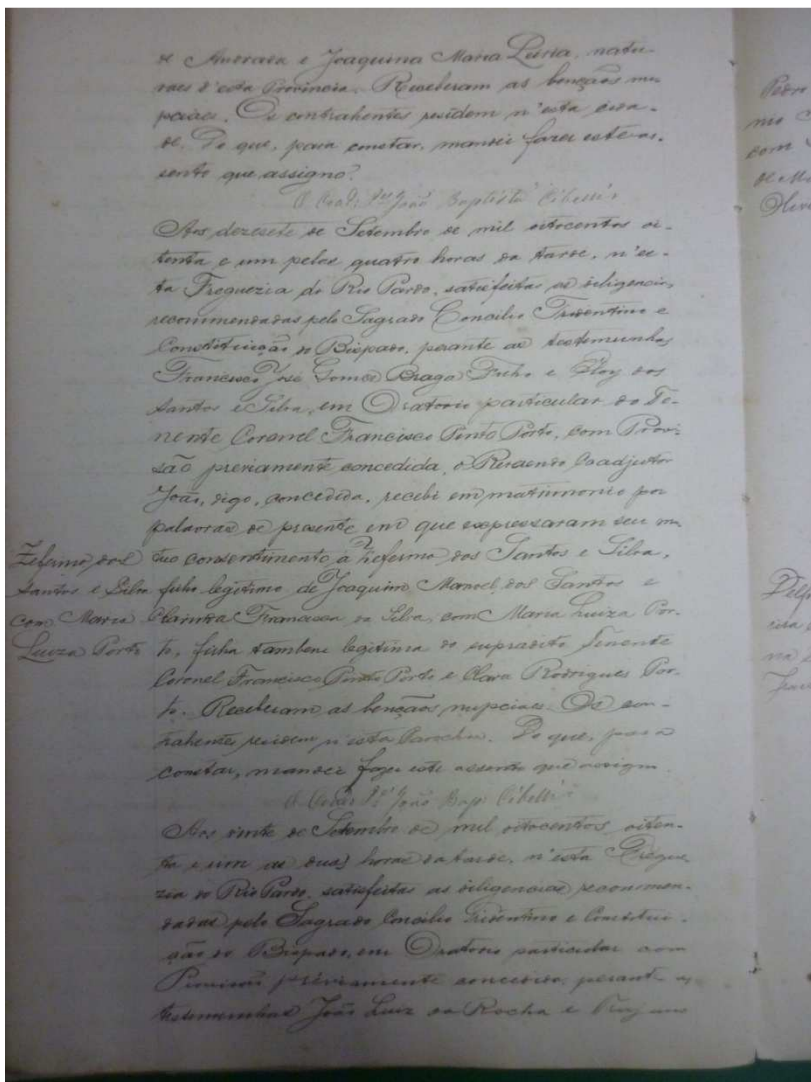 de Andrada e Joaquina Maria Luiza, natu-
raes d'esta Provincia. Receberam as bençãos nu-
pciaes. Os contrahentes residem n'esta cida-
de. Do que, para constar, mandei fazer este as-
sento que assigno.
O Coadr. João Baptista Cibelli
Aos dezesete de Setembro de mil oitocentos oi-
tenta e um pelas quatro horas da tarde, n'es-
ta Freguezia do Rio Pardo, satisfeitas as diligencias
recommendadas pelo Sagrado Concilio Tridentino e
Constituição do Bispado, perante as testemunhas
Francisco José Gomes Braga Filho e Eloy dos
Santos e Silva, em Oratorio particular do Te-
nente Coronel Francisco Pinto Porto, com Provi-
são previamente concedida, o Reverendo Coadjuctor
João, digo, concedida, recebi em matrimonio por
palavras de presente em que expressaram seu mu
tuo consentimento a Zeferino dos Santos e Silva,
filho legitimo de Joaquim Manoel dos Santos e
Francisca da Silva, com Maria Luiza Por-
to, filha tambem legitima do supradito Tenente
Coronel Francisco Pinto Porto e Clara Rodrigues Por-
to. Receberam as bençãos nupciaes. Os con-
trahentes residem n'esta Parochia. Do que, para
constar, mandei fazer este assento que assigno.
O Coadr. João Bap. Cibelli
Aos vinte de Setembro de mil oitocentos oiten-
ta e um as duas horas da tarde, n'esta Fregue
zia do Rio Pardo, satisfeitas as diligencias recommen-
dadas pelo Sagrado Concilio Tridentino e Constitui-
ção do Bispado, em Oratorio particular com
Provisão préviamente concedida, perante as
testemunhas João Luiz da Rocha e
Zeferino dos
Santos e Silva
com Maria
Luiza Porto
Pedro
mo
com
de